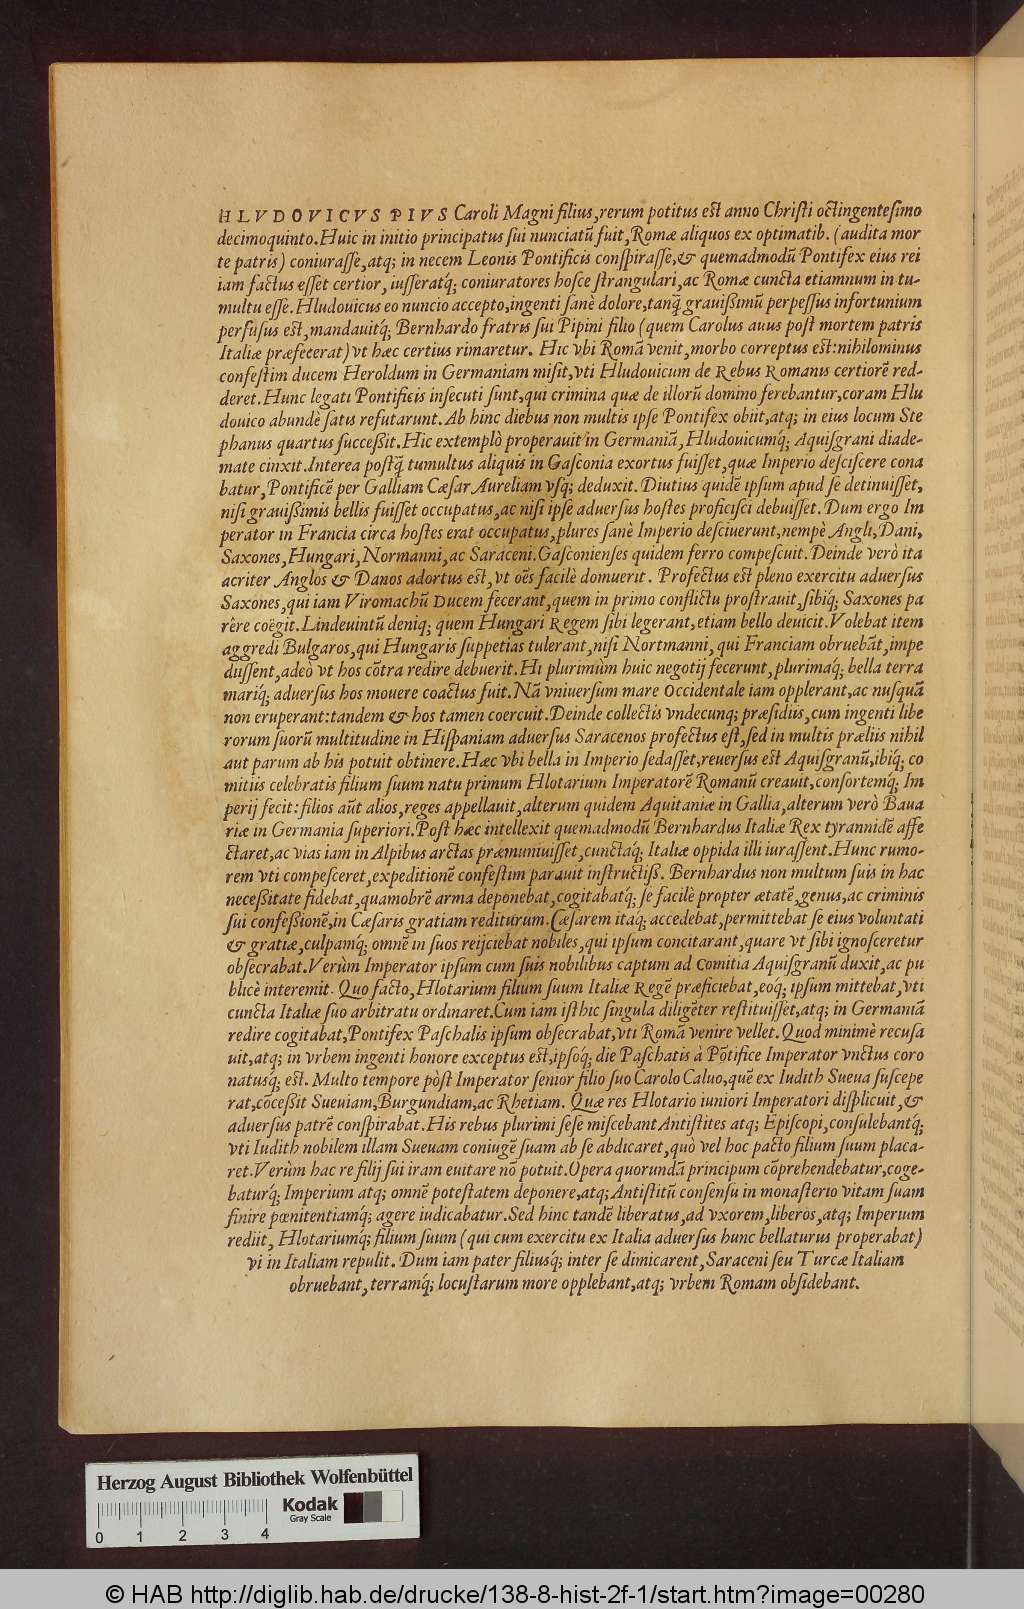 HLVDOVICVS PIVS Caroli Magni filius, rerum potitus est anno Christi octingentesimo
decimoquinto. Huic in initio principatus sui nunciatū fuit, Romæ aliquos ex optimatib. (audita mor
te patris) coniurasse, atq; in necem Leonis Pontificis conspirasse, & quemadmodū Pontifex eius rei
iam factus esset certior, iusseratq́; coniuratores hosce strangulari, ac Romæ cuncta etiamnum in tu-
multu esse. Hludouicus eo nuncio accepto, ingenti sanè dolore, tanq̃ grauißimū perpessus infortunium
perfusus est, mandauitq́; Bernhardo fratris sui Pipini filio (quem Carolus auus post mortem patris
Italiæ præfecerat) vt hæc certius rimaretur. Hic vbi Romā venit, morbo correptus est: nihilominus
confestim ducem Heroldum in Germaniam misit, vti Hludouicum de Rebus Romanis certiorē red-
deret. Hunc legati Pontificis insecuti sunt, qui crimina quæ de illorū domino ferebantur, coram Hlu
douico abundè satis refutarunt. Ab hinc diebus non multis ipse Pontifex obiit, atq; in eius locum Ste
phanus quartus succeßit. Hic extemplò properauit in Germaniā, Hludouicumq́; Aquisgrani diade-
mate cinxit. Interea postq̃ tumultus aliquis in Gasconia exortus fuisset, quæ Imperio desciscere cona
batur, Pontificē per Galliam Cæsar Aureliam vsq; deduxit. Diutius quidē ipsum apud se detinuisset,
nisi grauißimis bellis fuisset occupatus, ac nisi ipse aduersus hostes proficisci debuisset. Dum ergo Im
perator in Francia circa hostes erat occupatus, plures sanè Imperio desciuerunt, nempè Angli, Dani,
Saxones, Hungari, Normanni, ac Saraceni. Gasconienses quidem ferro compescuit. Deinde verò ita
acriter Anglos & Danos adortus est, vt oēs facilè domuerit. Profectus est pleno exercitu aduersus
Saxones, qui iam Viromachū Ducem fecerant, quem in primo conflictu prostrauit, sibiq́; Saxones pa
rêre coëgit. Lindeuintū deniq; quem Hungari Regem sibi legerant, etiam bello deuicit. Volebat item
aggredi Bulgaros, qui Hungaris suppetias tulerant, nisi Nortmanni, qui Franciam obruebāt, impe
dissent, adeò vt hos cōtra redire debuerit. Hi plurimùm huic negotij fecerunt, plurimaq́; bella terra
mariq́; aduersus hos mouere coactus fuit. Nā vniuersum mare Occidentale iam opplerant, ac nusquā
non eruperant: tandem & hos tamen coercuit. Deinde collectis vndecunq; præsidiis, cum ingenti libe
rorum suorū multitudine in Hispaniam aduersus Saracenos profectus est, sed in multis præliis nihil
aut parum ab his potuit obtinere. Hæc vbi bella in Imperio sedasset, reuersus est Aquisgranū, ibiq́; co
mitiis celebratis filium suum natu primum Hlotarium Imperatorē Romanū creauit, consortemq́; Im
perij fecit: filios aūt alios, reges appellauit, alterum quidem Aquitaniæ in Gallia, alterum verò Baua
riæ in Germania superiori. Post hæc intellexit quemadmodū Bernhardus Italiæ Rex tyrannidē affe
ctaret, ac vias iam in Alpibus arctas præmuniuisset, cunctaq́; Italiæ oppida illi iurassent. Hunc rumo-
rem vti compesceret, expeditionē confestim parauit instructiß. Bernhardus non multum suis in hac
neceßitate fidebat, quamobrē arma deponebat, cogitabatq́; se facilè propter ætatē, genus, ac criminis
sui confeßionē, in Cæsaris gratiam rediturum. Cæsarem itaq; accedebat, permittebat se eius voluntati
& gratiæ, culpamq́; omnē in suos reijciebat nobiles, qui ipsum concitarant, quare vt sibi ignosceretur
obsecrabat. Verùm Imperator ipsum cum suis nobilibus captum ad Comitia Aquisgranū duxit, ac pu
blicè interemit. Quo facto, Hlotarium filium suum Italiæ Regē præficiebat, eoq; ipsum mittebat, vti
cuncta Italiæ suo arbitratu ordinaret. Cum iam isthic singula diligēter restituisset, atq; in Germaniā
redire cogitabat, Pontifex Paschalis ipsum obsecrabat, vti Romā venire vellet. Quod minimè recusa
uit, atq; in vrbem ingenti honore exceptus est, ipsoq́; die Paschatis à Pōtifice Imperator vnctus coro
natusq́; est. Multo tempore pòst Imperator senior filio suo Carolo Caluo, quē ex Iudith Sueua suscepe
rat, cōceßit Sueuiam, Burgundiam, ac Rhetiam. Quæ res Hlotario iuniori Imperatori displicuit, &
aduersus patrē conspirabat. His rebus plurimi sese miscebant Antistites atq; Episcopi, consulebantq́;
vti Iudith nobilem illam Sueuam coniugē suam ab se abdicaret, quò vel hoc pacto filium suum placa-
ret. Verùm hac re filij sui iram euitare nō potuit. Opera quorundā principum cōprehendebatur, coge-
baturq́; Imperium atq; omnē potestatem deponere, atq; Antistitū consensu in monasterio vitam suam
finire pœnitentiamq́; agere iudicabatur. Sed hinc tandē liberatus, ad vxorem, liberos, atq; Imperium
rediit, Hlotariumq́; filium suum (qui cum exercitu ex Italia aduersus hunc bellaturus properabat)
vi in Italiam repulit. Dum iam pater filiusq́; inter se dimicarent, Saraceni seu Turcæ Italiam
obruebant, terramq́; locustarum more opplebant, atq; vrbem Romam obsidebant.
Herzog August Bibliothek Wolfenbüttel
Kodak
Gray Scale
0 1 2 3 4
© HAB http://diglib.hab.de/drucke/138-8-hist-2f-1/start.htm?image=00280